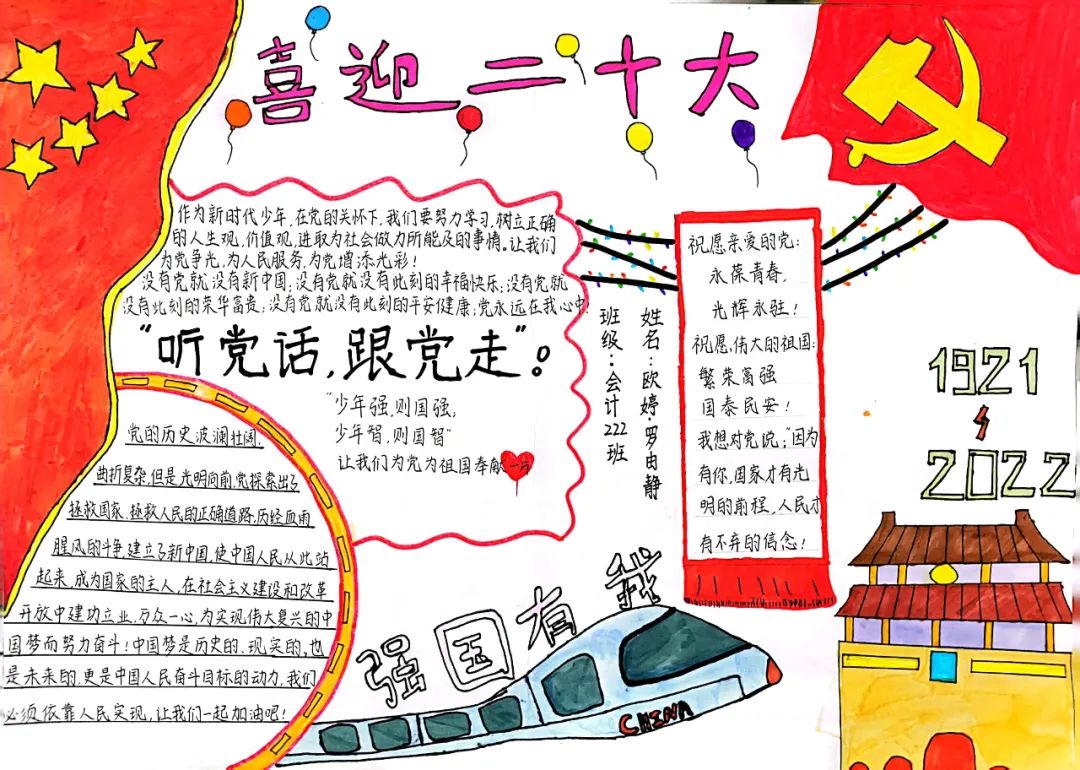 喜迎二十大
作为新时代少年,在党的关怀下,我们要努力学习,树立正确
的人生观,价值观,进取为社会做力所能及的事情。让我们
为党争光,为人民服务,为党增添光彩!
没有党就没有新中国;没有党就没有此刻的幸福快乐;没有党就
没有此刻的荣华富贵;没有党就没有此刻的平安健康;党永远在我心中!
“听党话,跟党走”。
“少年强,则国强,
少年智,则国智”
让我们为党为祖国奉献一片
班级:会计222班
姓名:欧婷·罗由静
祝愿亲爱的党:
永葆青春,
光辉永驻!
祝愿,伟大的祖国:
繁荣富强
国泰民安!
我想对党说;“因为
有你,国家才有光
明的前程,人民才
有不弃的信念!
1921
2022
党的历史波澜壮阔,
曲折复杂,但是光明向前,党探索出了
拯救国家,拯救人民的正确道路,历经血雨
腥风的斗争,建立了新中国,使中国人民从此站
起来,成为国家的主人,在社会主义建设和改革
开放中建功立业,万众一心,为实现伟大复兴的中
国梦而努力奋斗!中国梦是历史的、现实的,也
是未来的,更是中国人民奋斗目标的动力,我们
必须依靠人民实现,让我们一起加油吧!
强国有我
CHINA